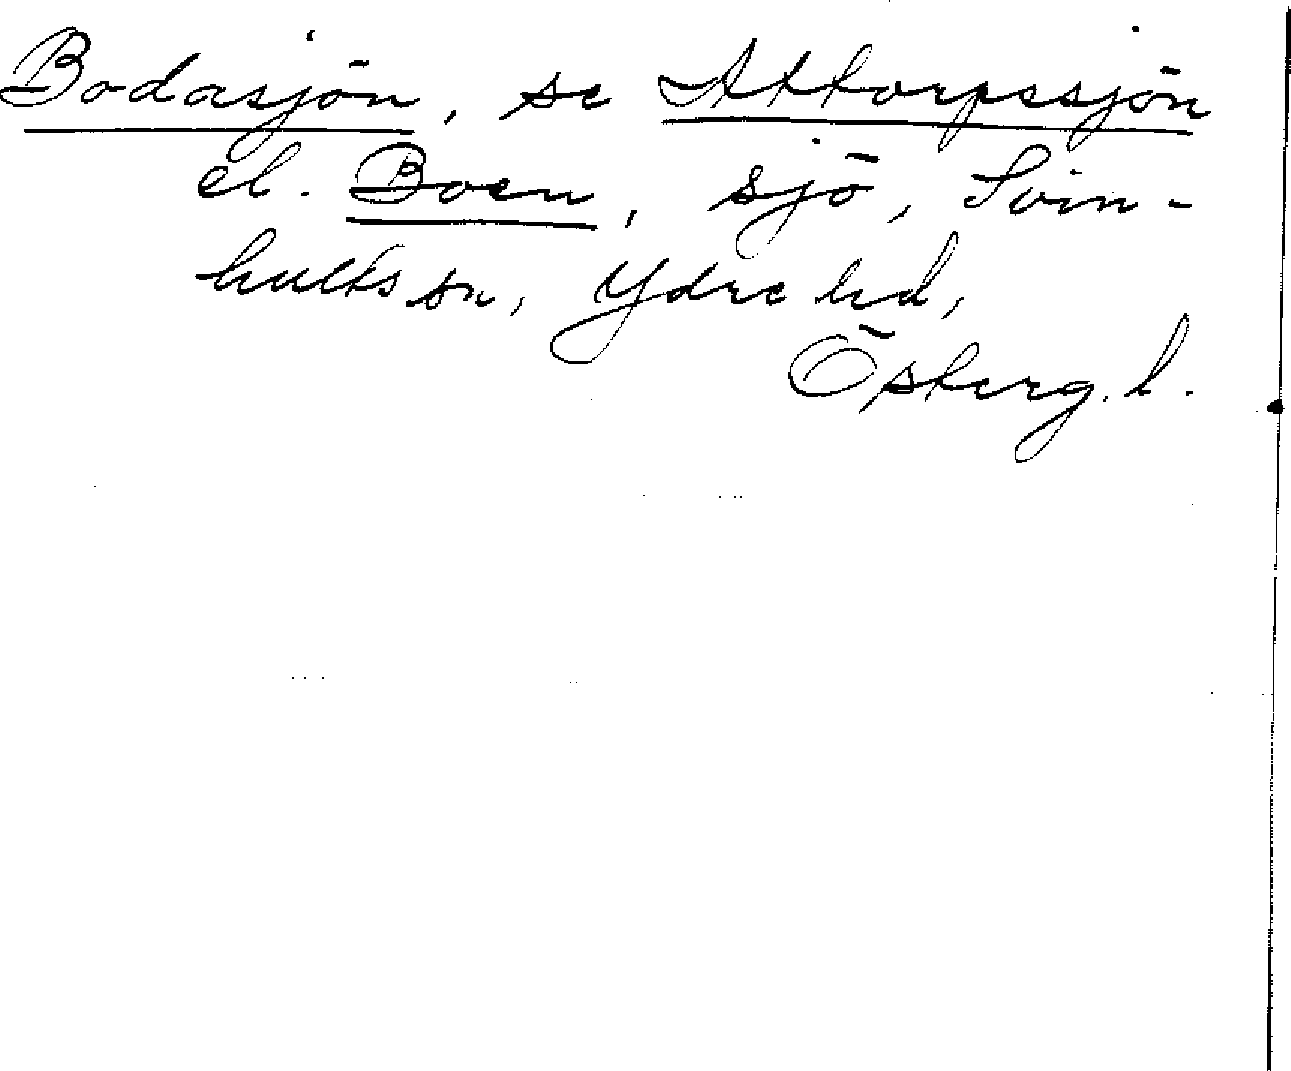 Bodasjön, se Attorpssjön
el. Boen, sjö, Svin-
hults sn, Ydre hd,
Österg. l.